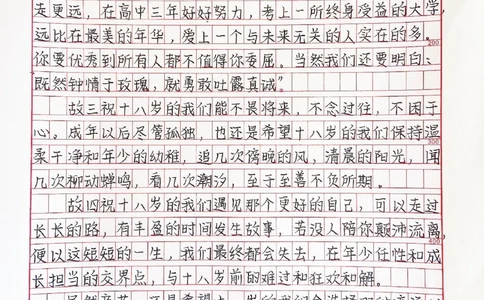 走更远，在高中三年好好努力，考上一所终身受益的大学，
远比在最美的年华，爱上一个与未来无关的人实在的多。
200
你要优秀到所有人都不值得你委屈。当然我们还要明白：
既然钟情于玫瑰，就勇敢吐露真诚”
故三祝十八岁的我们能不畏将来，不念过往，不困于
心，成年以后尽管孤独，也还是希望十八岁的我们保持温
300
柔干净和年少的幼稚，追几次傍晚的风，清晨的阳光，闻
几次柳动蝉鸣，看几次潮汐，至于至善不负所期。
故四祝十八岁的我们遇见那个更好的自己，可以走过
长长的路，有丰盈的时间发生故事，若没人陪你颠沛流离，
400
便以这短短的一生，我们最终都会失去，在年少任性和成
长担当的交界点，与十八岁前的难过和狂欢和解。